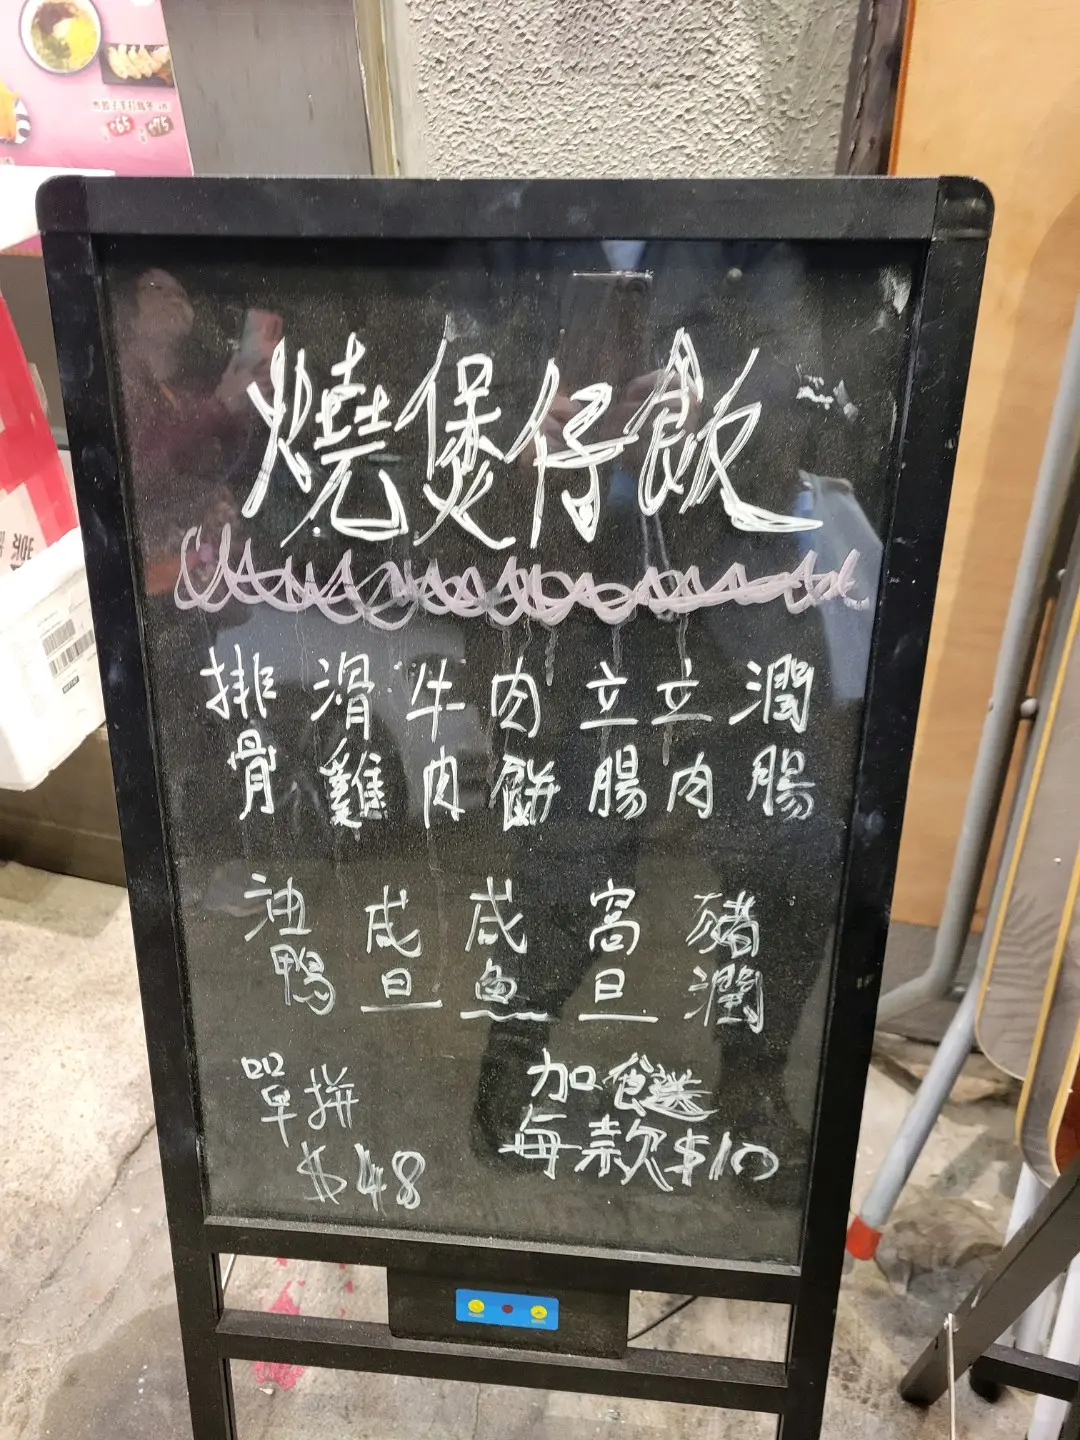 $65 $75
燒煲仔飯
排骨
滑雞
牛肉
肉餅
立腸
立肉
潤腸
油鴨
咸旦
咸魚
窩旦
豬潤
單拼
$48
加餸
每款$10